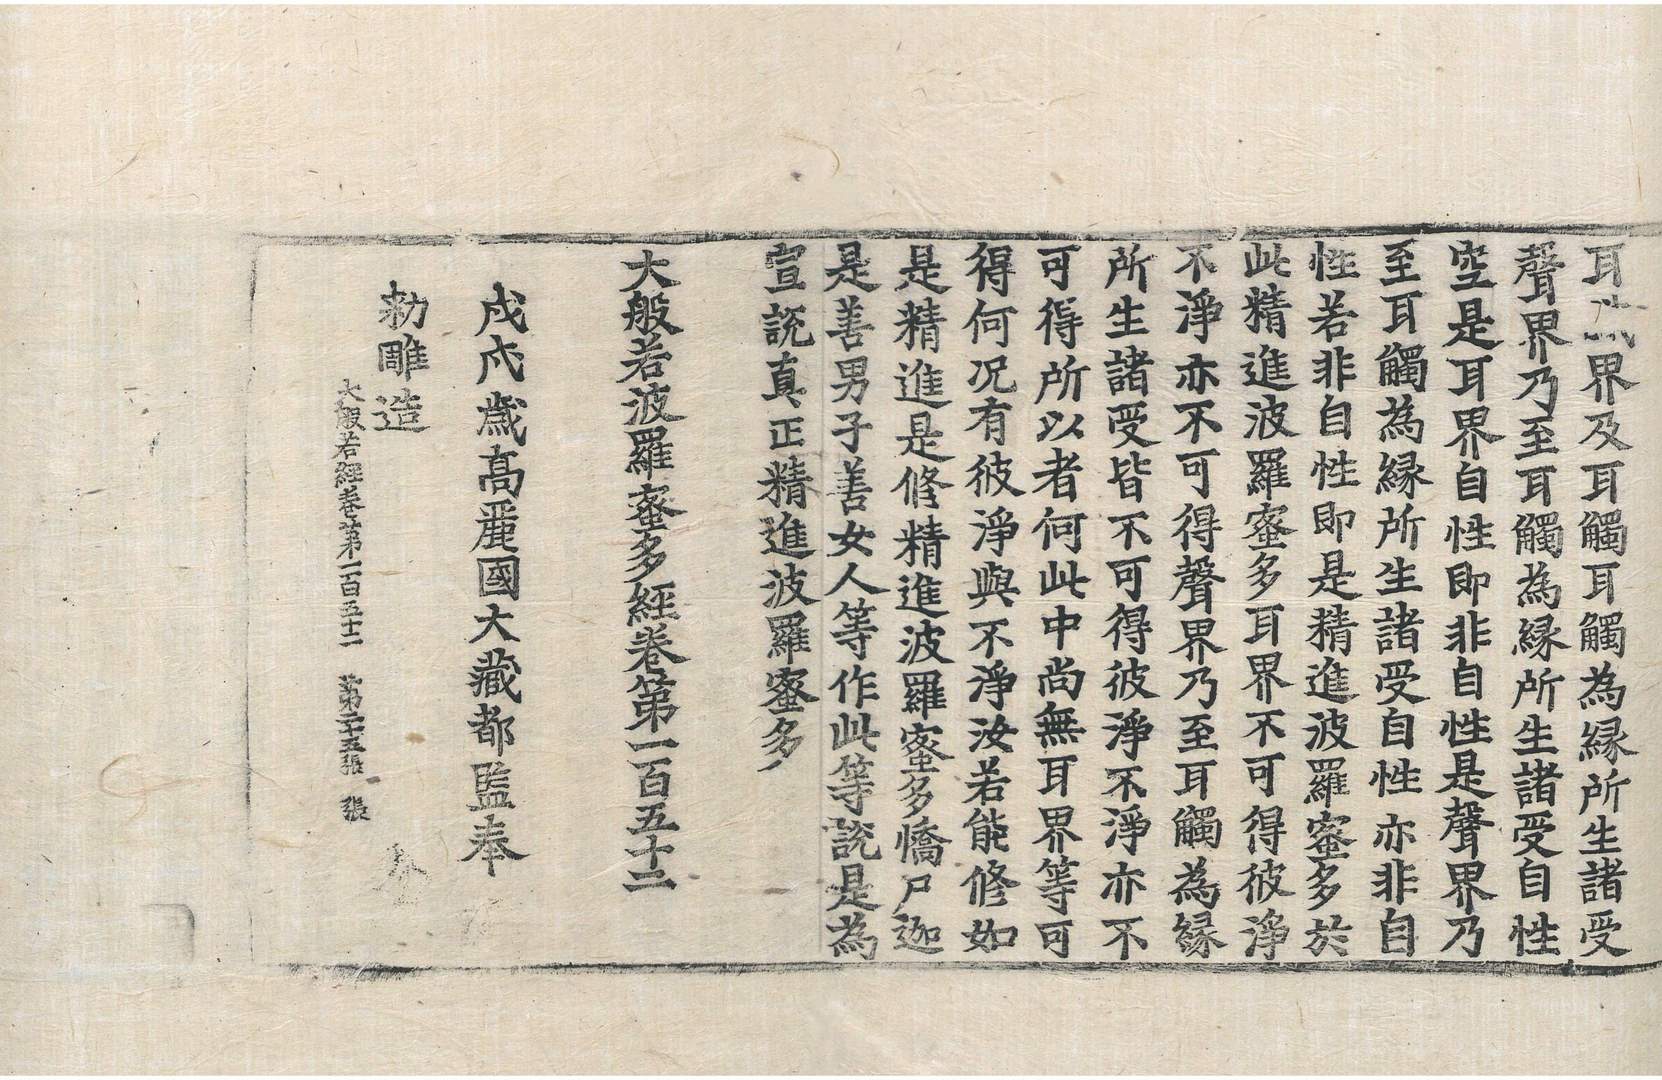 耳識界及耳觸耳觸為縁所生諸受
聲界乃至耳觸為縁所生諸受自性
空是耳界自性即非自性是聲界乃
至耳觸為縁所生諸受自性亦非自
性若非自性即是精進波羅蜜多於
此精進波羅蜜多耳界不可得彼淨
不淨亦不可得聲界乃至耳觸為縁
所生諸受皆不可得彼淨不淨亦不
可得所以者何此中尚無耳界等可
得何況有彼淨與不淨汝若能修如
是精進是修精進波羅蜜多憍尸迦
是善男子善女人等作此等説是為
宣説真正精進波羅蜜多
大般若波羅蜜多經卷第一百五十二
戊戌歳高麗國大藏都監奉
勑雕造
大般若經卷第一百五十二 第二十五張 張